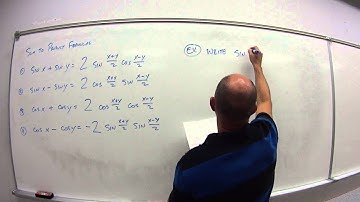 Sum to Product Formulas
① sin x + sin y = 2 sin (x+y)/2 cos (x-y)/2
② sin x - sin y = 2 cos (x+y)/2 sin (x-y)/2
③ cos x + cos y = 2 cos (x+y)/2 cos (x-y)/2
④ cos x - cos y = -2 sin (x+y)/2 sin (x-y)/2
EX Write sin